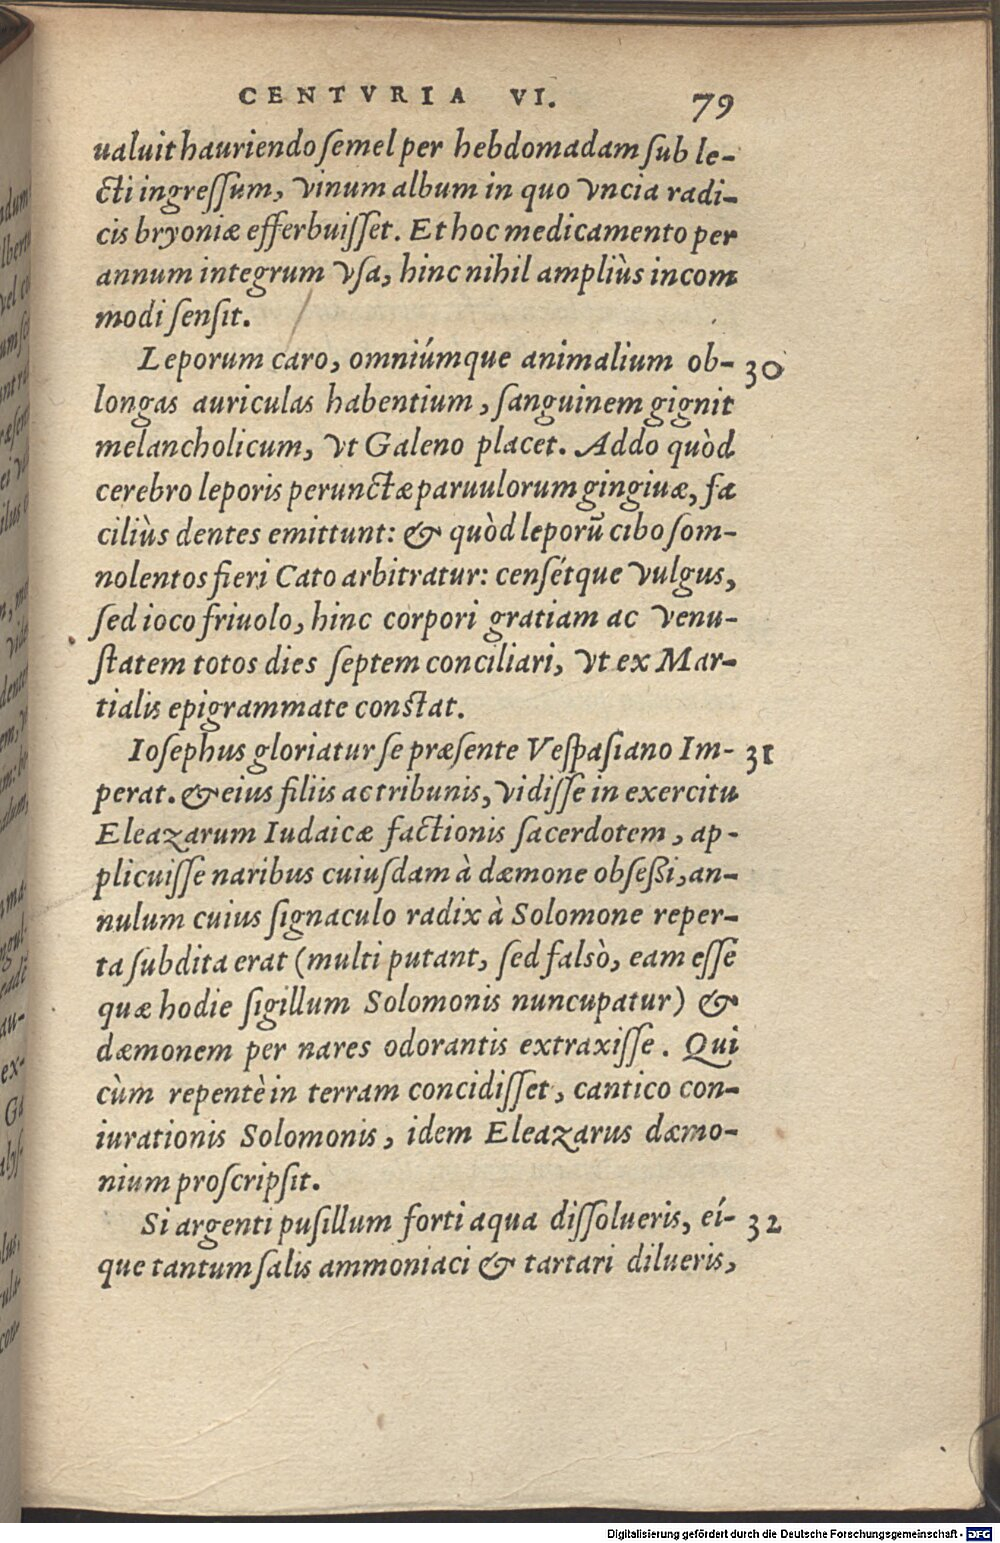 CENTVRIA VI. 79
ualuit hauriendo semel per hebdomadam sub le-
cti ingressum, vinum album in quo vncia radi-
cis bryoniæ efferbuisset. Et hoc medicamento per
annum integrum vsa, hinc nihil ampliùs incom
modi sensit.
Leporum caro, omniúmque animalium ob- 30
longas auriculas habentium, sanguinem gignit
melancholicum, vt Galeno placet. Addo quòd
cerebro leporis perunctæ paruulorum gingiuæ, fa
ciliùs dentes emittunt: & quòd leporū cibo som-
nolentos fieri Cato arbitratur: censétque vulgus,
sed ioco friuolo, hinc corpori gratiam ac venu-
statem totos dies septem conciliari, vt ex Mar-
tialis epigrammate constat.
Iosephus gloriatur se præsente Vespasiano Im- 31
perat. & eius filiis ac tribunis, vidisse in exercitu
Eleazarum Iudaicæ factionis sacerdotem, ap-
plicuisse naribus cuiusdam à dæmone obseßi, an-
nulum cuius signaculo radix à Solomone reper-
ta subdita erat (multi putant, sed falsò, eam esse
quæ hodie sigillum Solomonis nuncupatur) &
dæmonem per nares odorantis extraxisse. Qui
cùm repentè in terram concidisset, cantico con-
iurationis Solomonis, idem Eleazarus dæmo-
nium proscripsit.
Si argenti pusillum forti aqua dissolueris, eí- 32
que tantum salis ammoniaci & tartari dilueris,
Digitalisierung gefördert durch die Deutsche Forschungsgemeinschaft - DFG